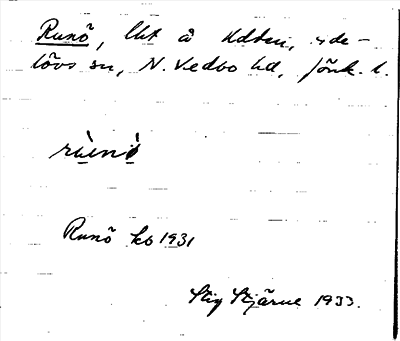 Runö, lht å
lövs sn, N. Vedbo hd, Jönk. l.
rùnö̀
Runö kb 1931
Stig Stjärne 1933.